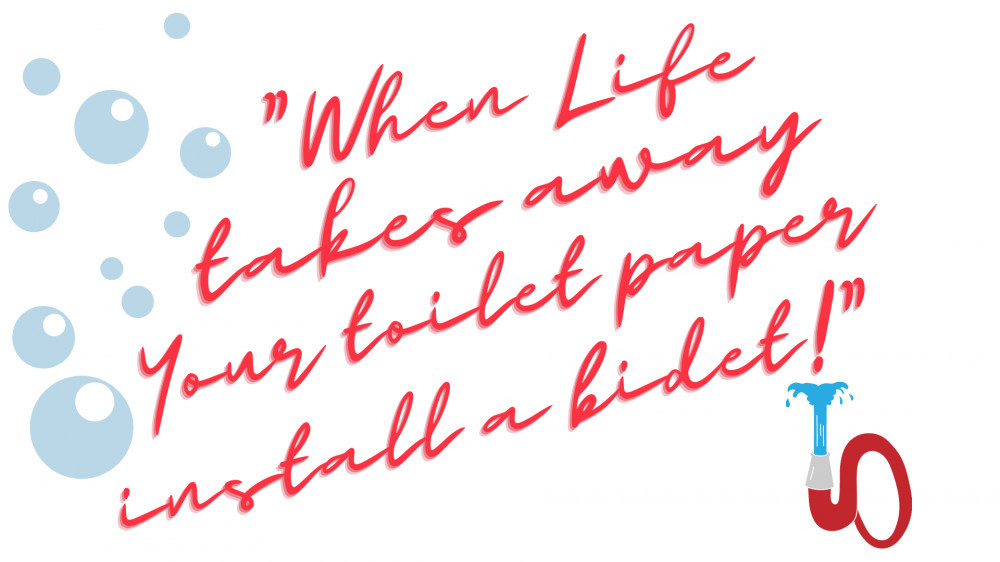 "When Life
takes away
Your toilet paper
install a bidet!"